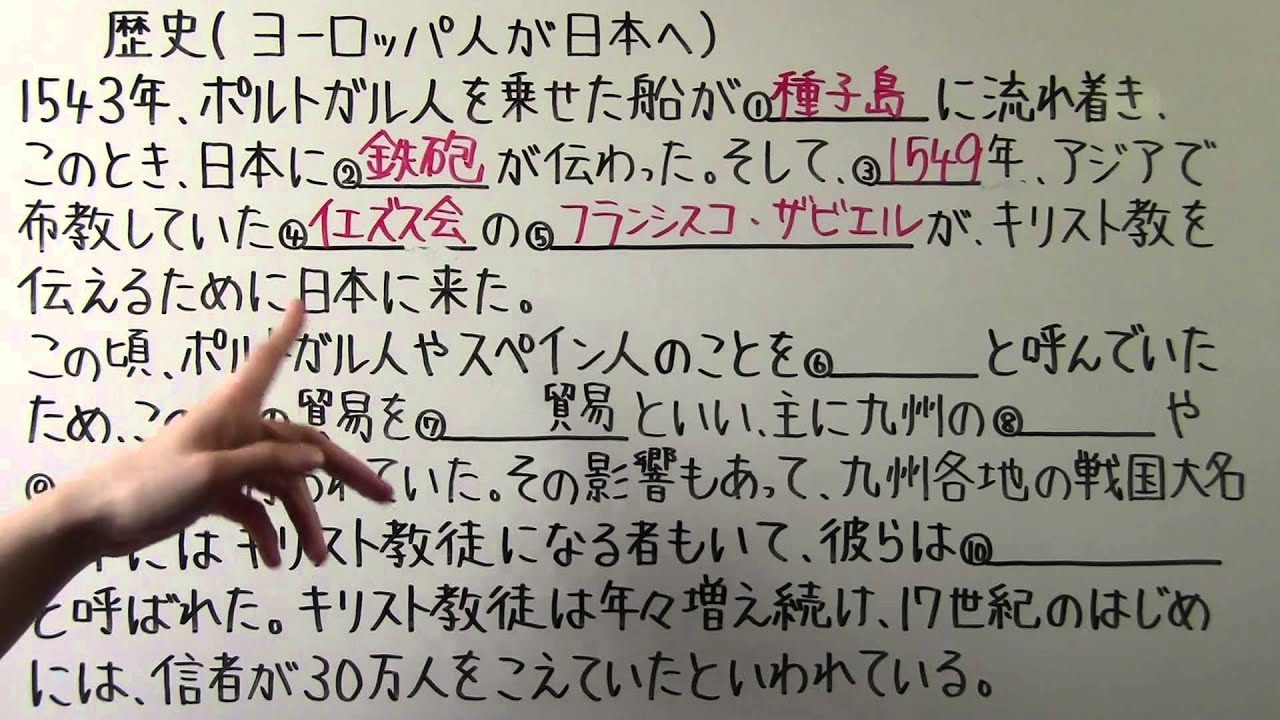 歴史(ヨーロッパ人が日本へ)
1543年、ポルトガル人を乗せた船が①種子島に流れ着き、
このとき、日本に②鉄砲が伝わった。そして、③1549年、アジアで
布教していた④イエズス会の⑤フランシスコ・ザビエルが、キリスト教を
伝えるために日本に来た。
この頃、ポルトガル人やスペイン人のことを⑥______と呼んでいた
ため、こ の貿易を⑦______貿易といい、主に九州の⑧______や
⑨ れていた。その影響もあって、九州各地の戦国大名
にはキリスト教徒になる者もいて、彼らは⑩______
と呼ばれた。キリスト教徒は年々増え続け、17世紀のはじめ
には、信者が30万人をこえていたといわれている。